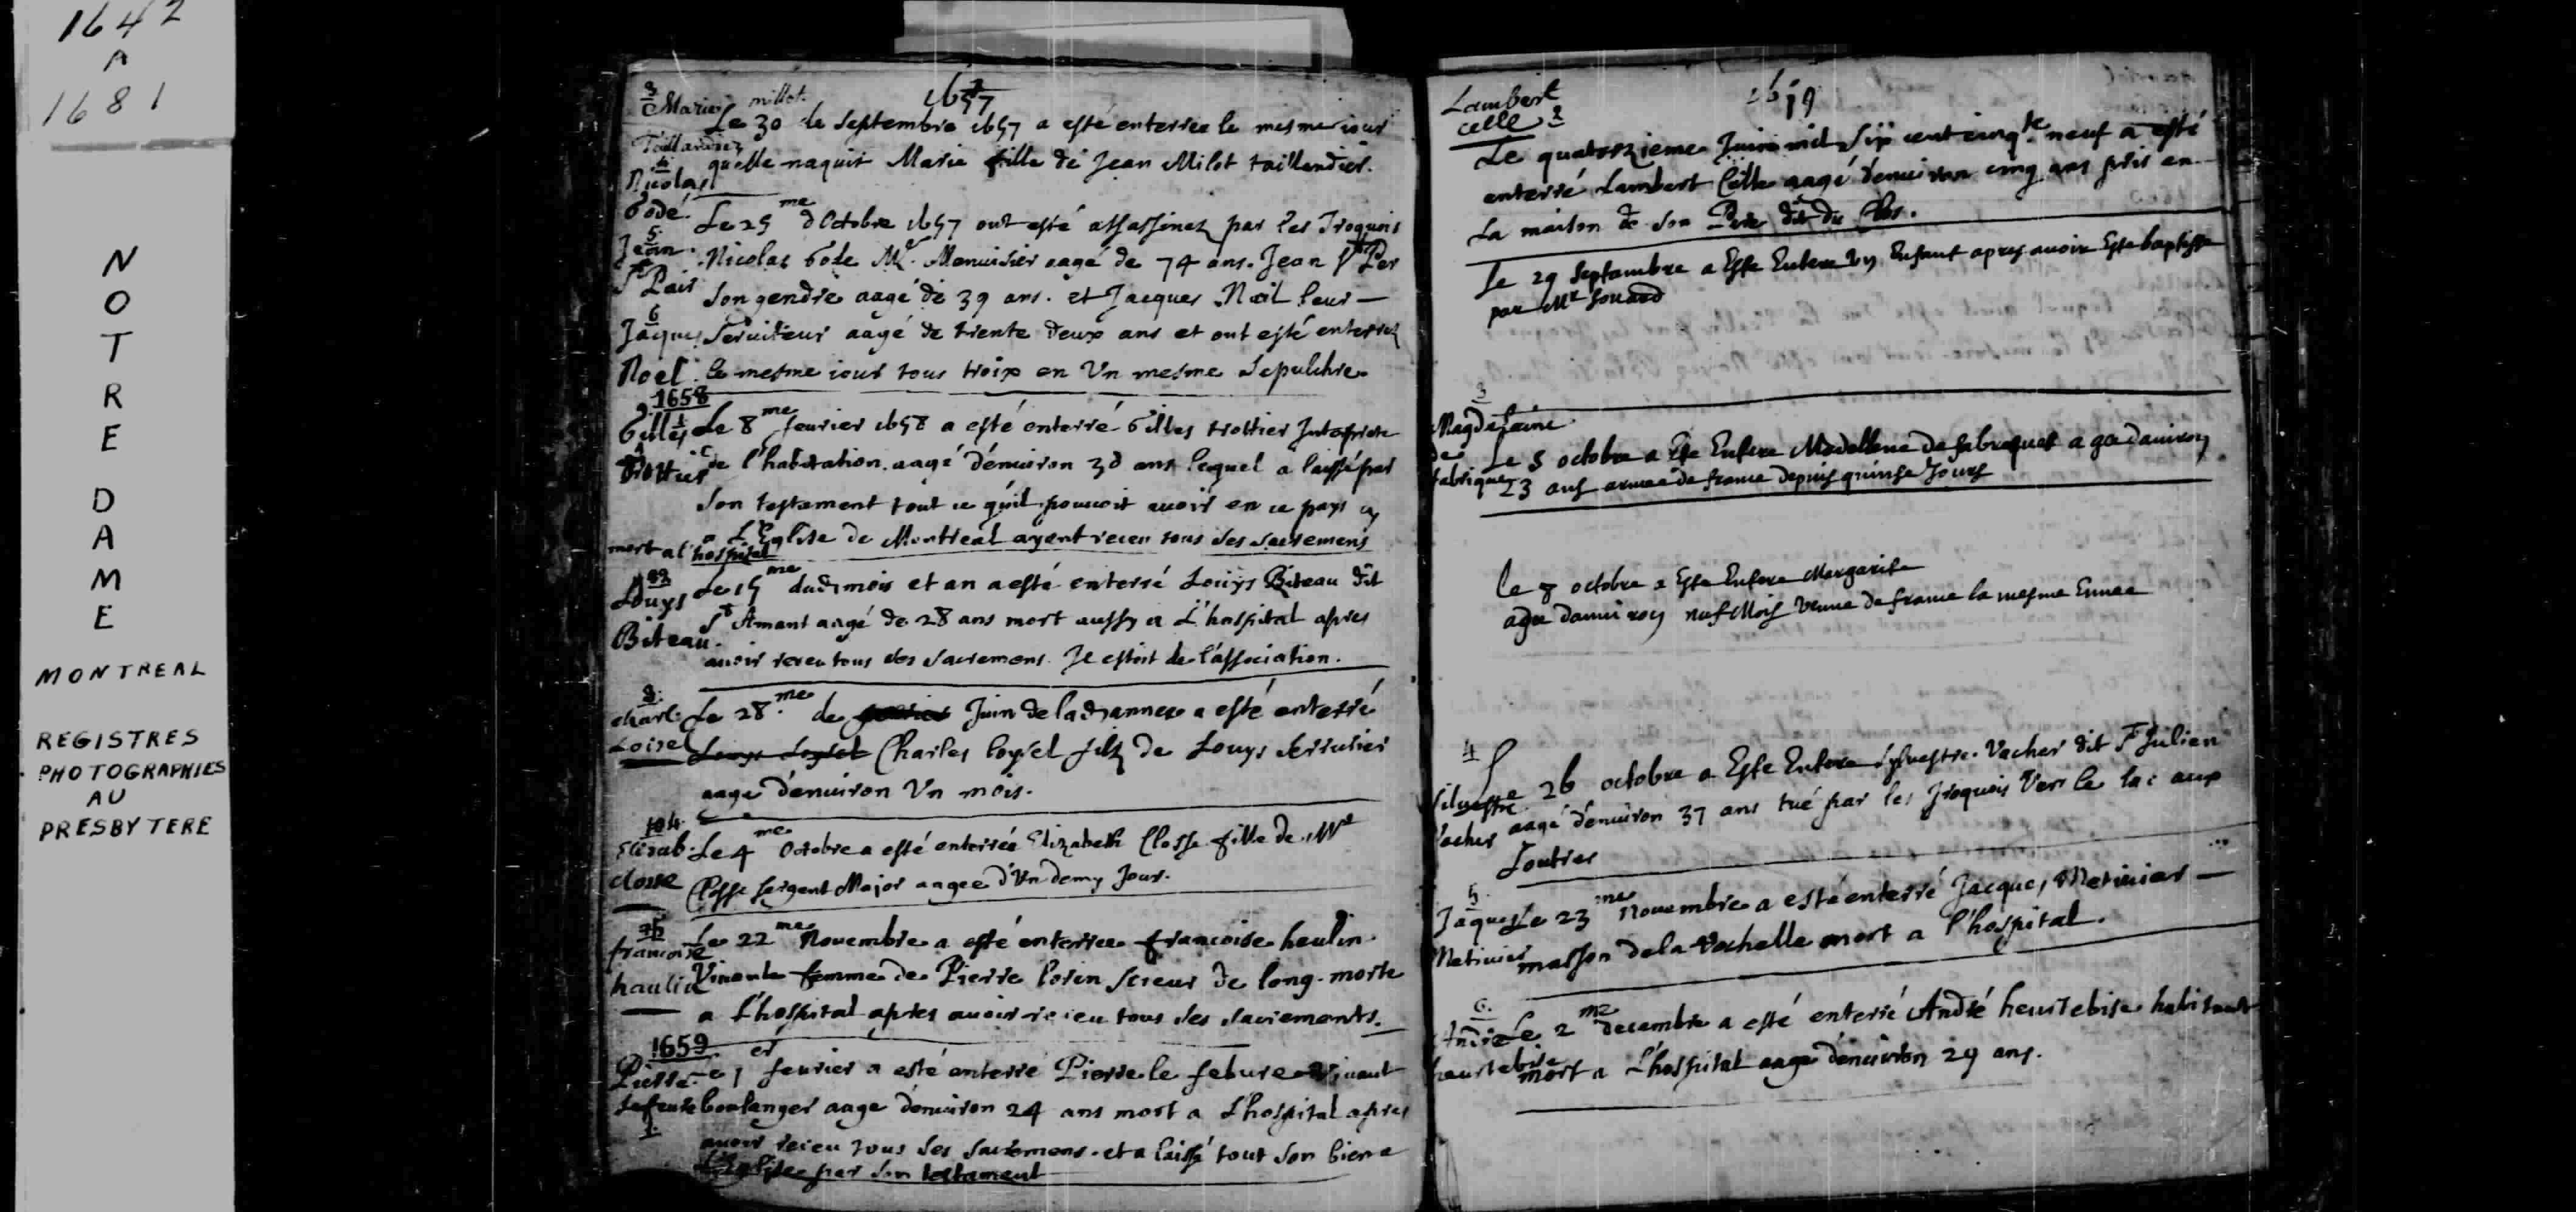 1642
A
1681
NOTRE DAME
MONTREAL
REGISTRES
PHOTOGRAPHIES
AU
PRESBYTERE
1657
3
Marie millot.
Taillandier
Le 30 de Septembre 1657 a esté enterrée le mesme iour
quelle naquit Marie fille de Jean Milot taillandier.
4
Nicolas
Godé.
5
Jean
St Pair
6
Jaques
Noel
Le 25me d'Octobre 1657 ont esté assassinez par les Iroquois
Nicolas Gode Me. Menuisier aagé de 74 ans. Jean St Per
son gendre aagé de 39 ans. et Jacques Noil leur
seruiteur aagé de trente deux ans et ont esté enterrez
le mesme iour tous troix en Vn mesme Sepulchre
1658
Gilles 1
trottier
Le 8me feurier 1658 a esté enterré Gilles trottier
de l'habitation aagé d'enuiron 30 ans lequel a laissé par
son testament tout ce qu'il pouuoit auoir en ce pays cy
a L'Eglise de Montreal ayant receu tous ses sacremens
mort a l'hospital
2
Louys
Biteau.
Le 15me dud mois et an a esté enterré Louys Biteau dit
St Amant aagé de 28 ans mort aussy a L'hospital apres
auoir receu tous ses sacremens. Il estoit de l'association.
3.
charl.
Loisel
Le 28.me de Juin de lad annee a esté enterré
Louys Loysel Charles loysel filz de Louys serrurier
aage d'enuiron Vn mois.
4.
Elisab.
closse
Le 4me Octobre a esté enterrée Elizabeth Closse fille de Mr
Closse sergent Major aagee d'Vn demy Jour.
5
francoise
haulin
Le 22me Nouembre a esté enterree francoise heulin
Viuante femme de Pierre lorin scieur de long. morte
a L'hospital apres auoir receu tous ses sacrements.
1659
Pierre
Lefeure
1.
Le 1er feurier a esté enterré Pierre le febure Viuant
boulanger aage denuiron 24 ans mort a L'hospital apres
auoir receu tous ses sacremens. et a laissé tout son bien a
L'Eglise par son testament
1659
Lambert
celle 2
Le quatorzieme Juin mil Six cent cinqte neuf a esté
enterré Lambert Celle aagé denuiron cinq ans pris en
La maison de son Pere dit du Clos.
le 29 Septambre a Este Entere Vn Enfant apres auoir Este baptisse
par Mr Souard
3
Magdelaine
de
fabrique
Le 5 octobre a Este Entere Madellene de fabreques a gee daniron
23 ans arriuee de france depuis quinse Jours
le 8 octobre a Este Entere Margarite
agee danuiron nuf Mois venue de france la mesme Ennee
4
siluestre
Vacher
Le 26 octobre a Este Entere Syluestre. Vacher dit St Julien
aagé d'enuiron 37 ans tué par les Iroquois Vers le lac aux
Loutres
5.
Jaques
Metiuier
Le 23me Nouembre a esté enterré Jacques Metiuier
masson de la Rochelle mort a l'hospital.
6.
André
heurtebise
Le 2me decembre a esté enterré André heurtebise habitant
mort a L'hospital aage denuiron 29 ans.